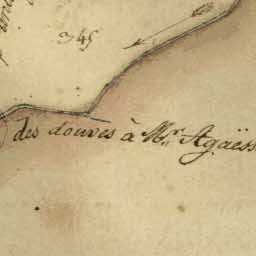 345
des douves à Mr. Agaëss